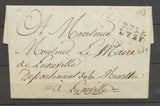 A Monsieur
Monsieur Le Maire
de Luneville
Departement de la Meurthe
a Luneville